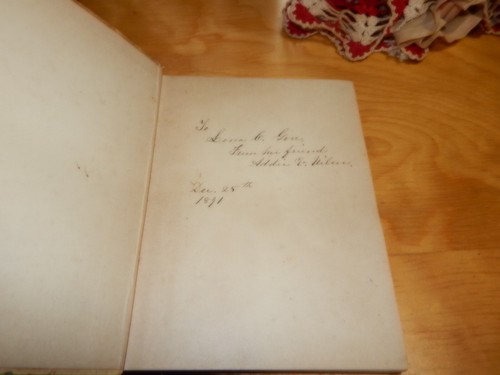 To
Lena C. Gou,
From her friend
Addie V. Wilson,
Dec. 25th
1891